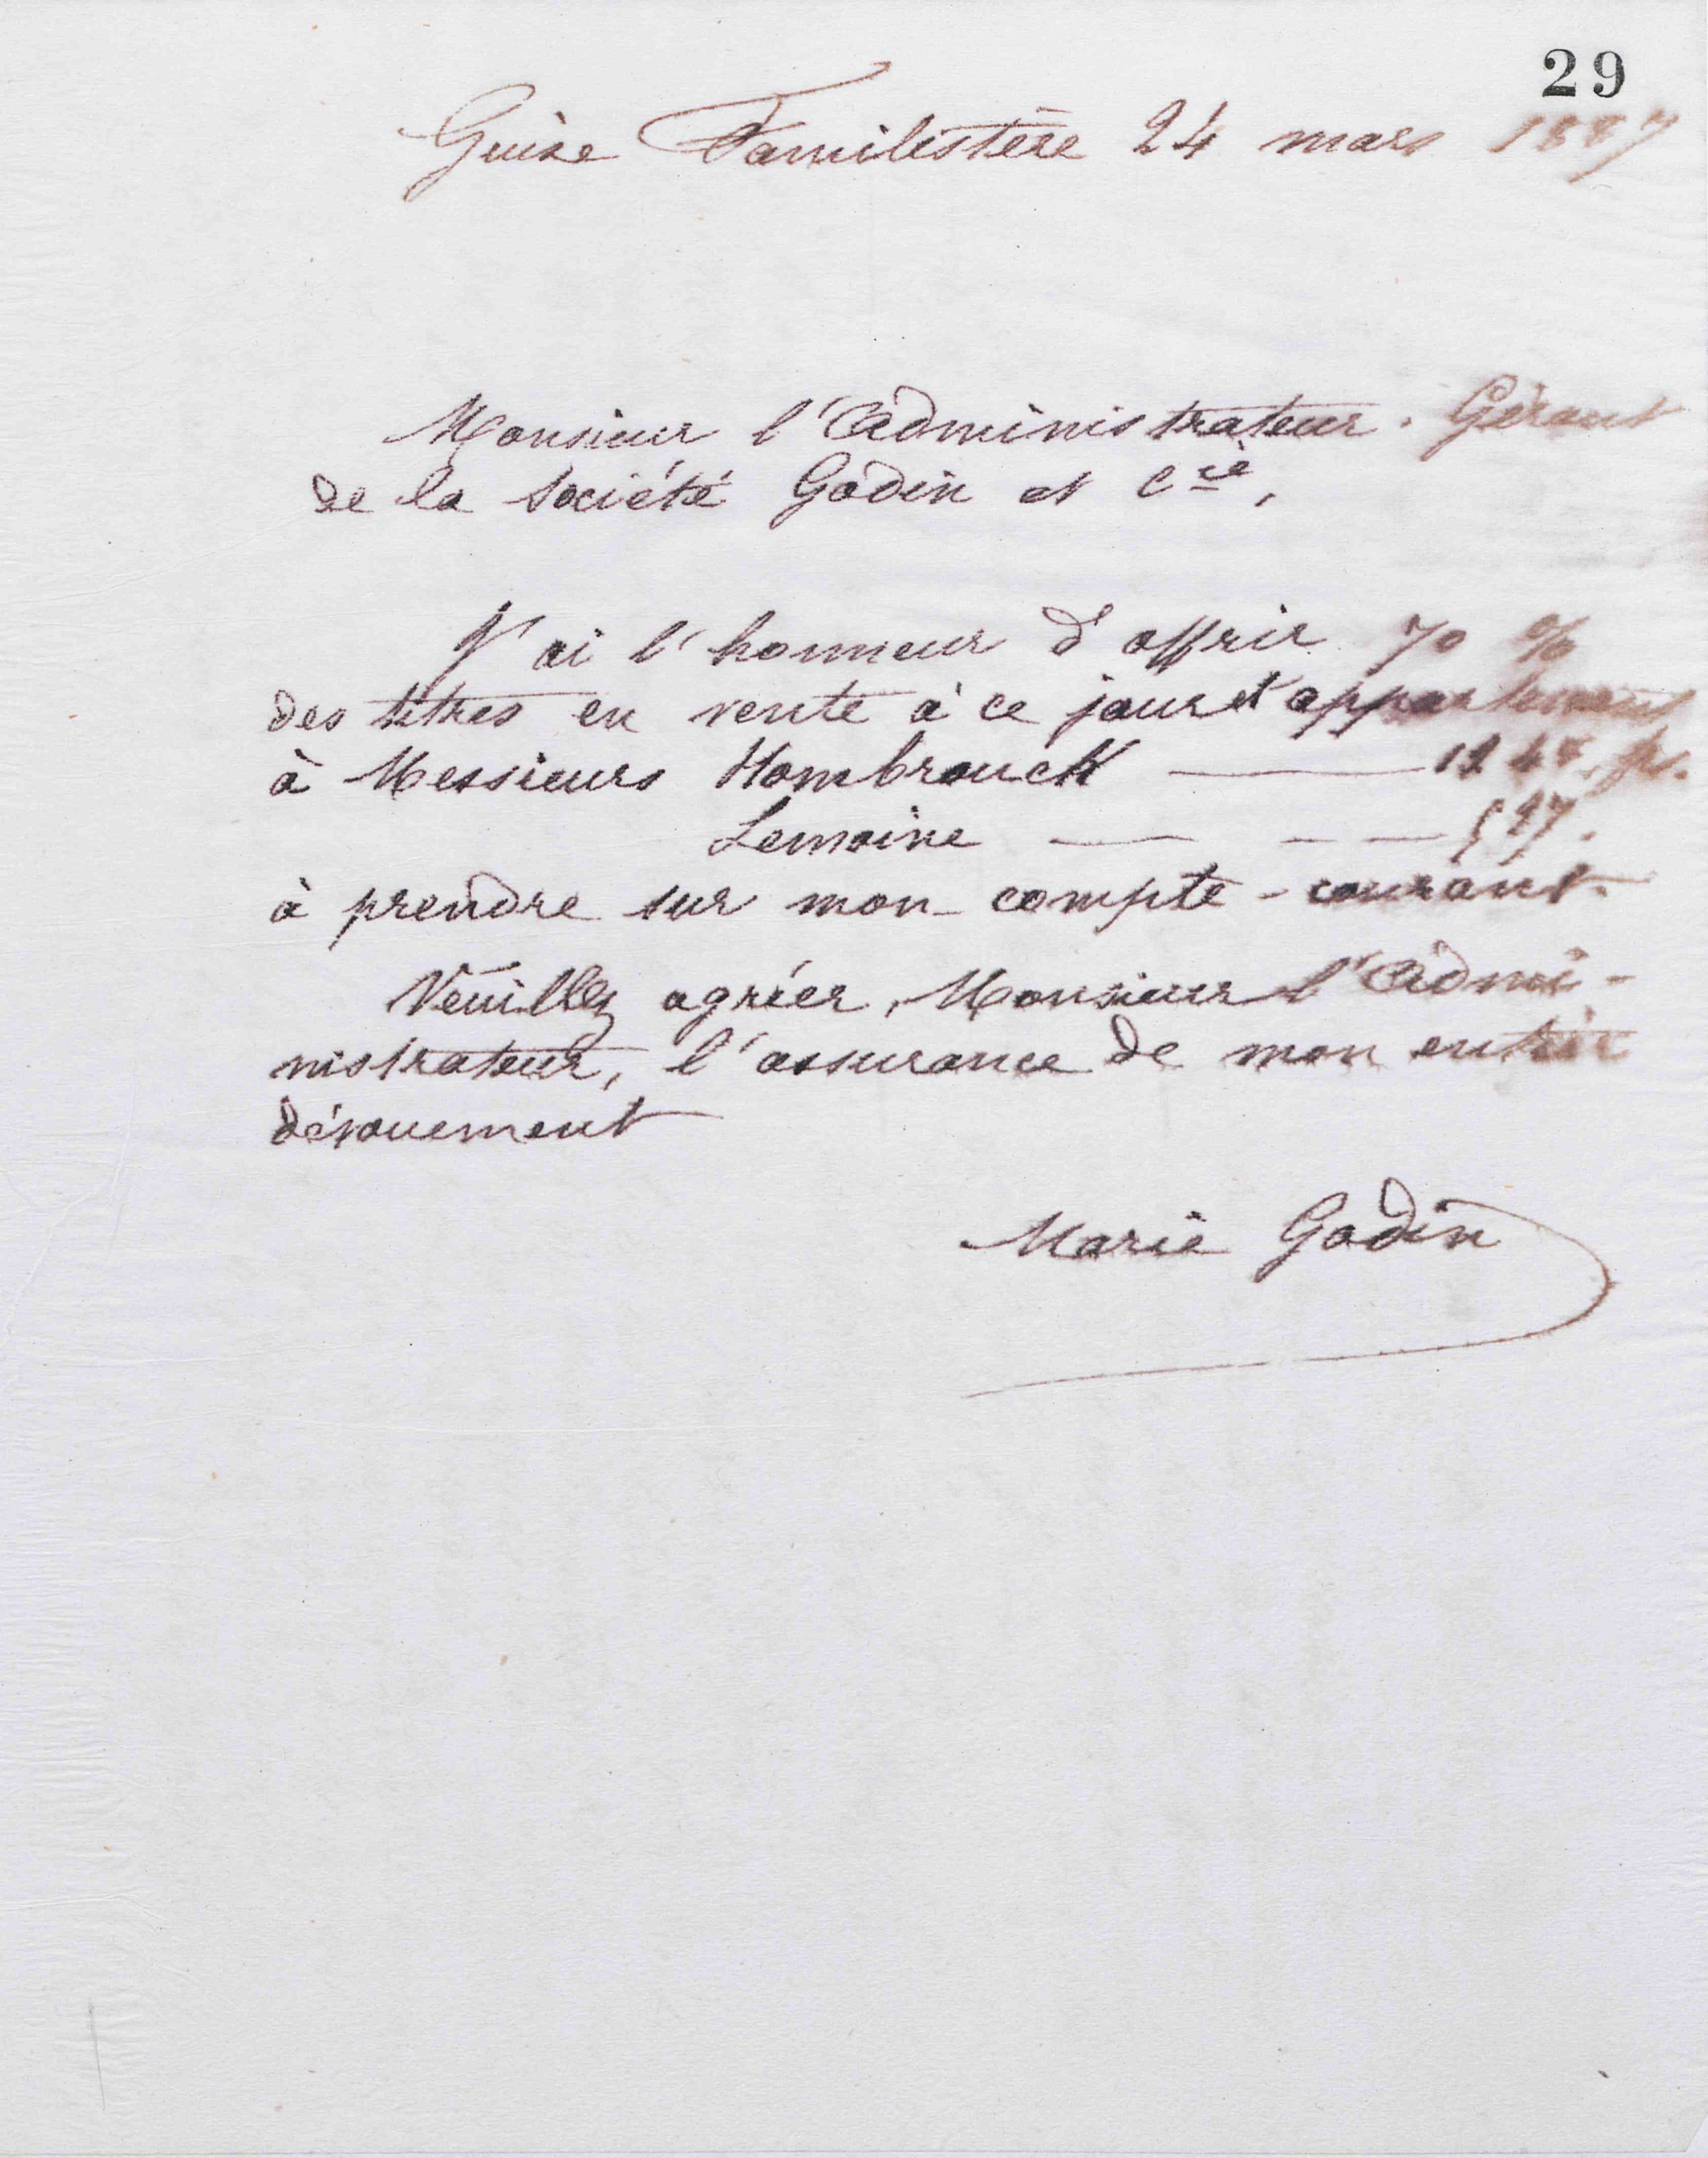 29
Guise Familistère 24 mars 1887
Monsieur l'Administrateur-Gérant
de la Société Godin et Cie,
J'ai l'honneur d'offrir 70 %
des titres en vente à ce jour et appartenant
à Messieurs Hombrouck —
Lemoine — — —
à prendre sur mon compte-courant.
Veuillez agréer, Monsieur l'Admi-
nistrateur, l'assurance de mon entier
dévouement
Marie Godin